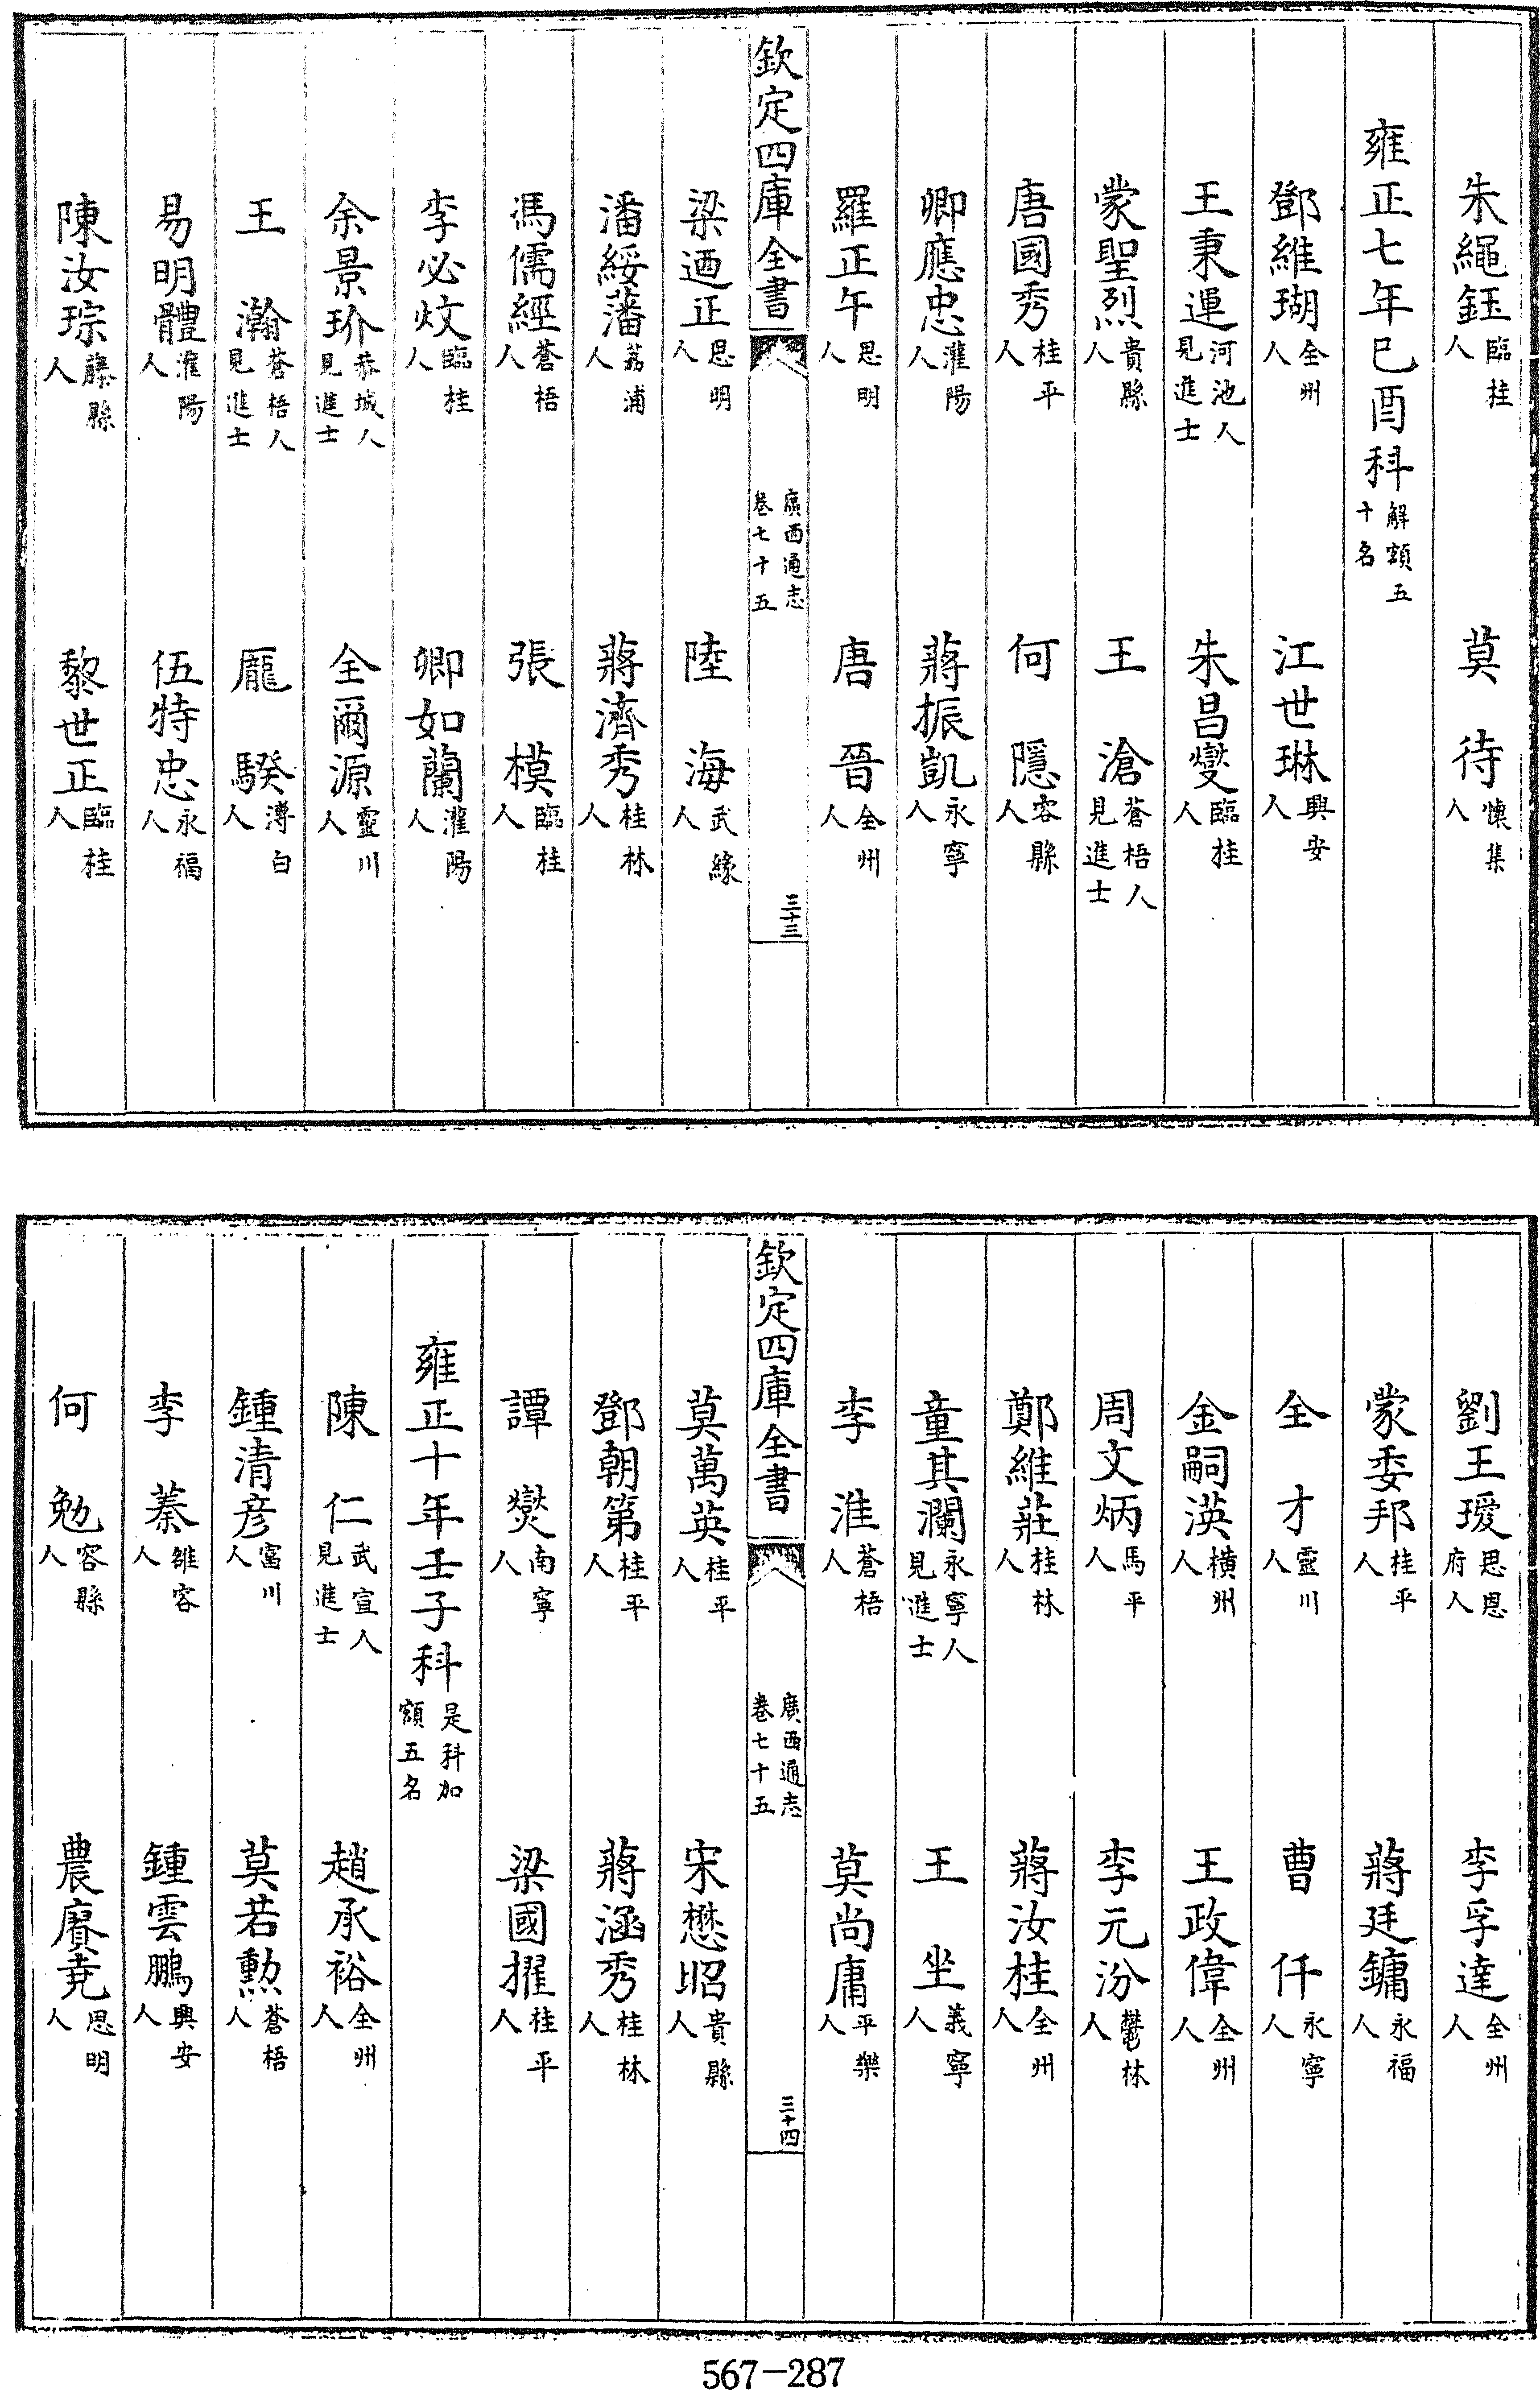 朱繩鈺臨桂人　莫待懷集人
雍正七年己酉科解額五十名
鄧維瑚全州人　江世琳興安人
王秉運河池人見進士　朱昌燮臨桂人
蒙聖烈貴縣人　王滄蒼梧人見進士
唐國秀桂平人　何隱容縣人
卿應忠灌陽人　蔣振凱永寧人
羅正午思明人　唐晉全州人
欽定四庫全書　廣西通志卷七十五　三十三
梁迺正思明人　陸海武緣人
潘綏藩荔浦人　蔣濟秀桂林人
馮儒經蒼梧人　張模臨桂人
李必炆臨桂人　卿如蘭灌陽人
余景玠恭城人見進士　全爾源靈川人
王瀚蒼梧人見進士　龐騤博白人
易明體灌陽人　伍特忠永福人
陳汝琮藤縣人　黎世正臨桂人
劉王璦思恩府人　李孚達全州人
蒙委邦桂平人　蔣廷鏞永福人
全才靈川人　曹仟永寧人
金嗣渶橫州人　王政偉全州人
周文炳馬平人　李元汾鬱林人
鄭維莊桂林人　蔣汝桂全州人
童其瀾永寧人見進士　王坐義寧人
李淮蒼梧人　莫尚庸平樂人
欽定四庫全書　廣西通志卷七十五　三十四
莫萬英桂平人　宋懋昭貴縣人
鄧朝第桂平人　蔣涵秀桂林人
譚爕南寧人　梁國擢桂平人
雍正十年壬子科是科加額五名
陳仁武宣人見進士　趙承裕全州人
鍾清彥富川人　莫若勲蒼梧人
李蓁雒容人　鍾雲鵬興安人
何勉容縣人　農賡堯思明人
567-287